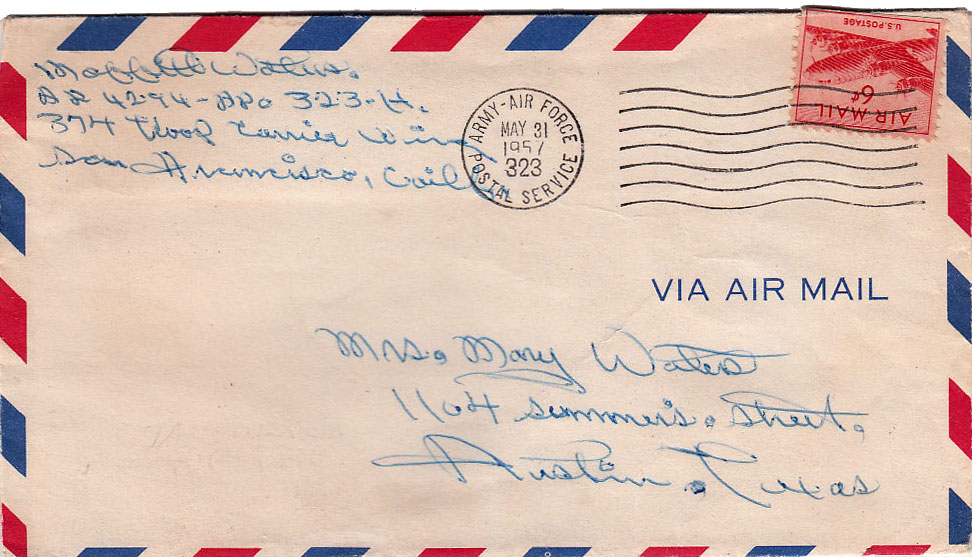 Waters.
AR 4294-APO 323-H.
374 Troop Carrier Wing
San Francisco, Calif.
ARMY-AIR FORCE
MAY 31
1957
323
POSTAL SERVICE
U.S. POSTAGE
6¢
AIR MAIL
VIA AIR MAIL
Mrs. Mary Waters
1104 Summer's. Street.
Austin, Texas